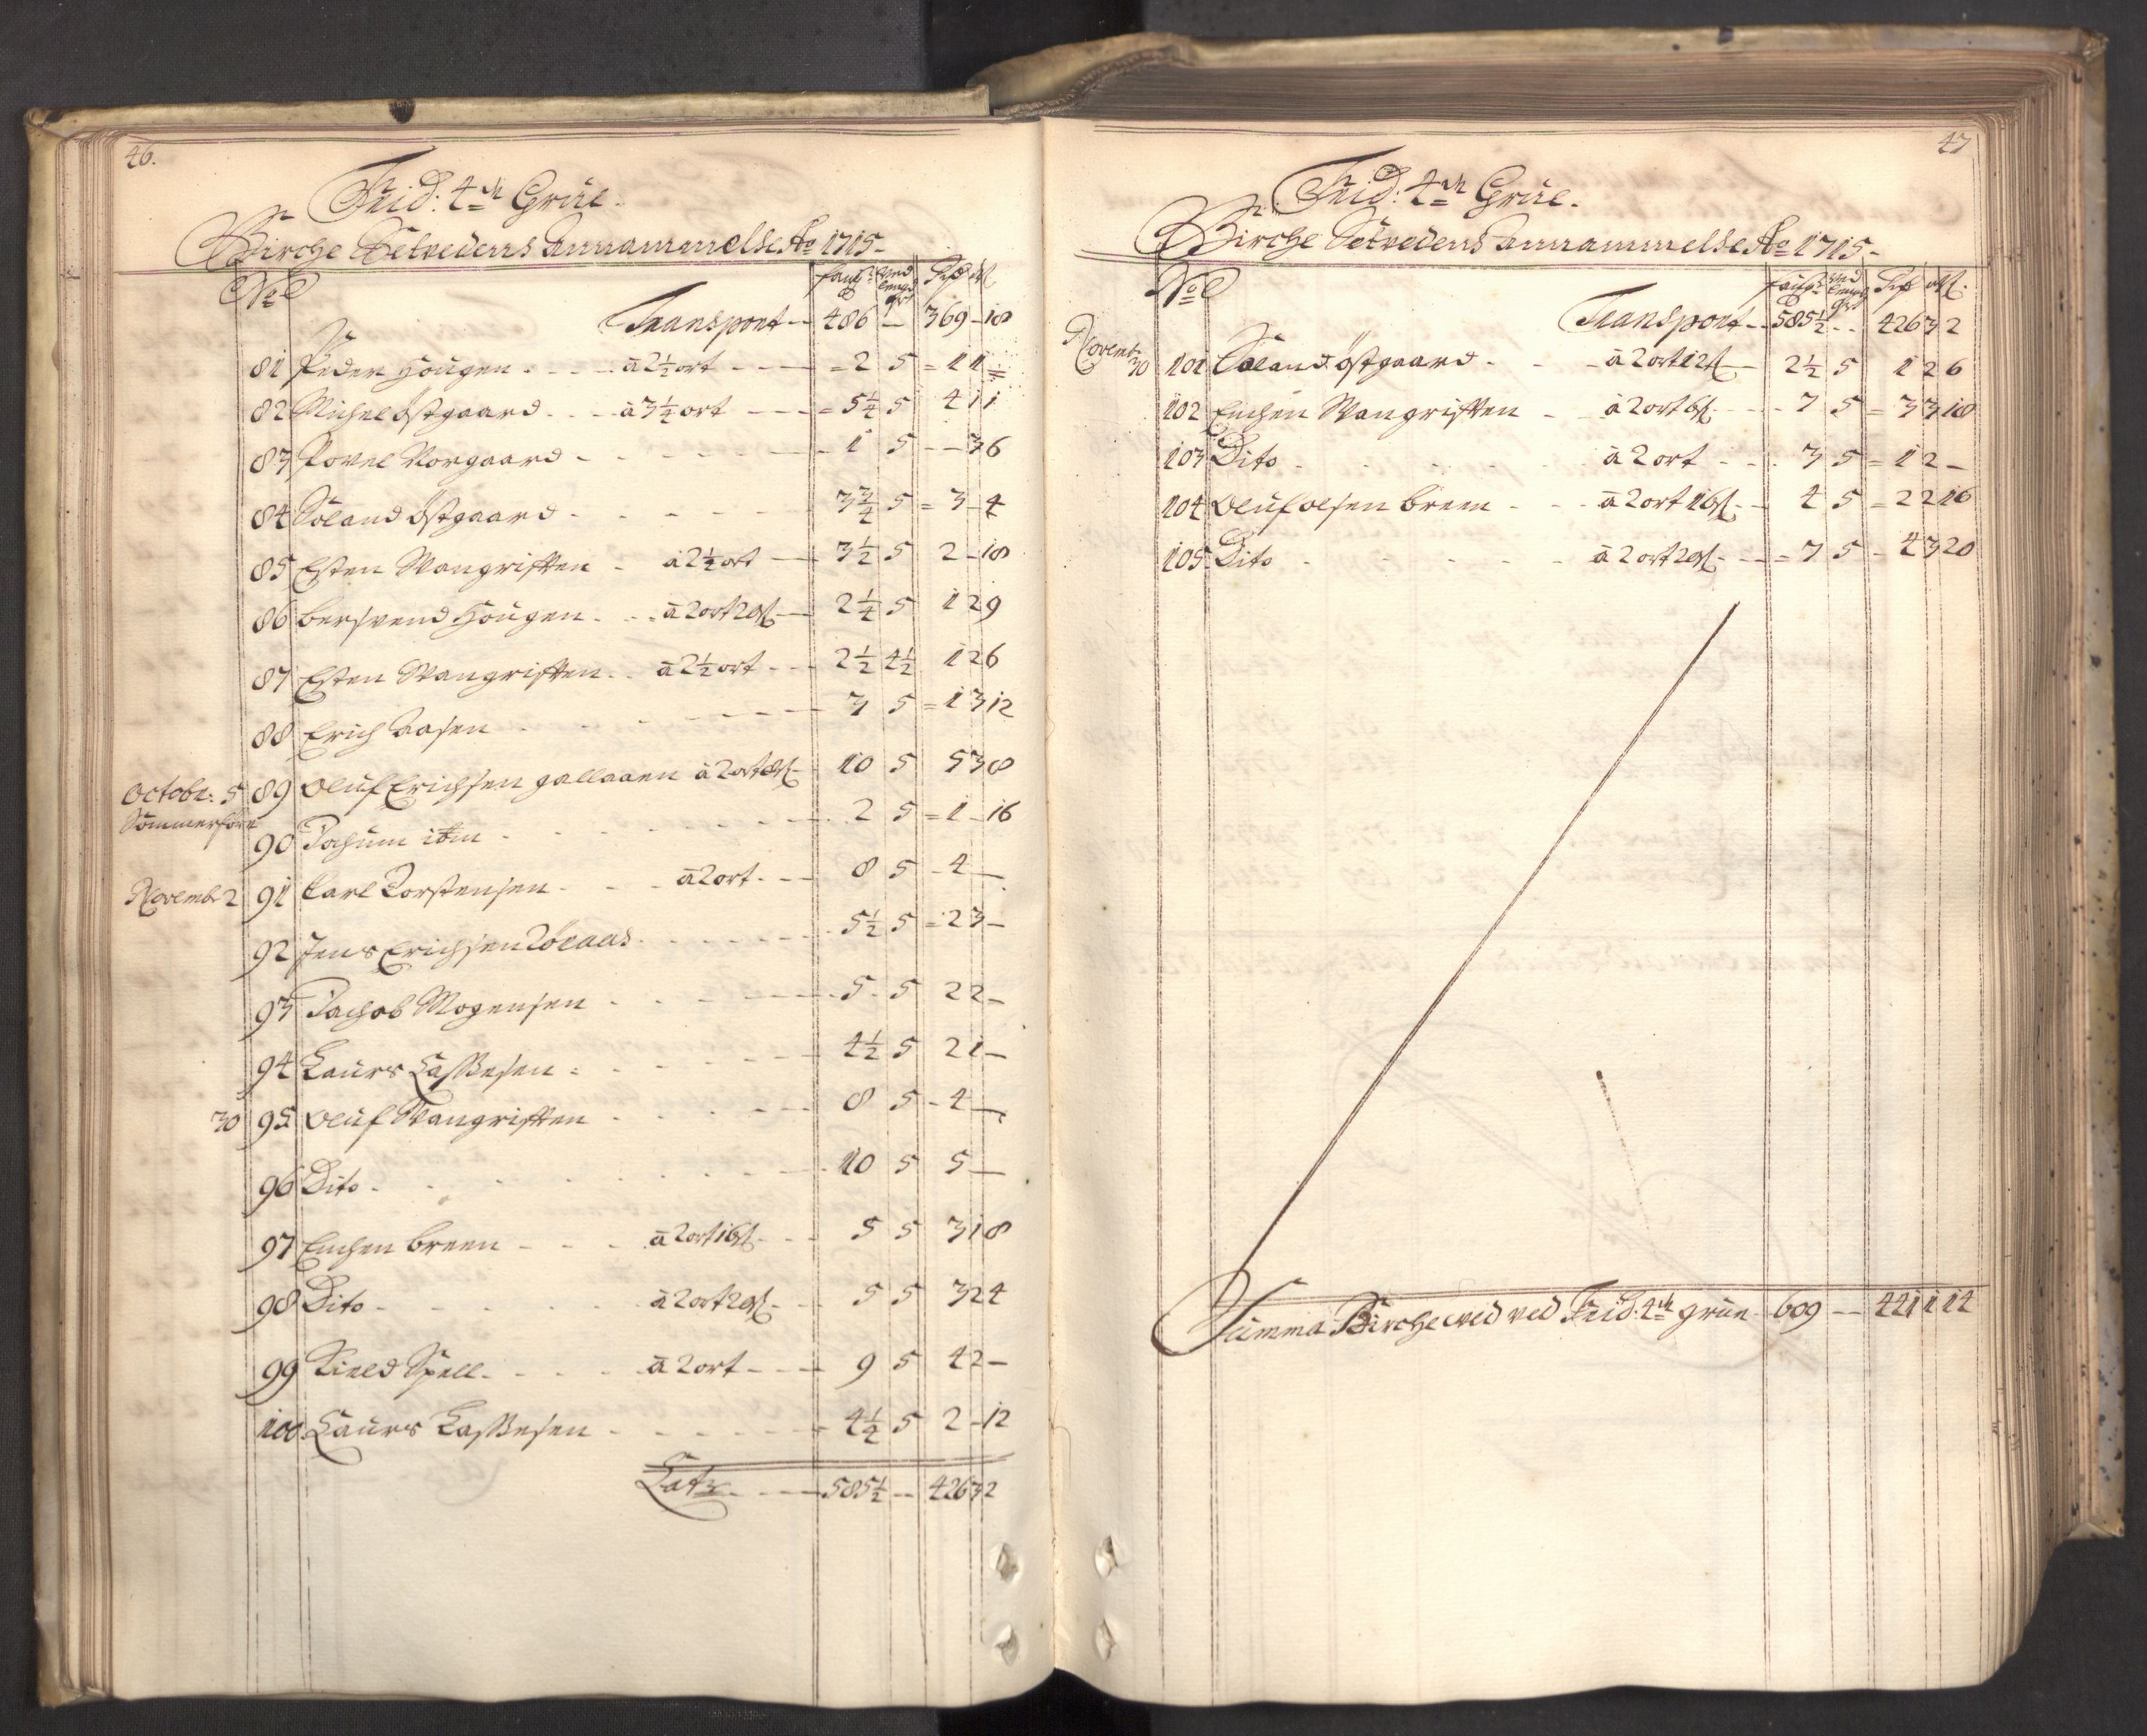 46.
Frid: 4de Grue.
Birche Setvedens Annammelse Ao 1715-
No favn: Ved lengd qr Rdr ort ß
Transport - 486 - 369 - 18
81 Peder Hougen - - - a 2½ ort - - - 2 5 = 1 1 =
82 Michel Østgaard - - - a 3¼ ort - - - 5¼ 5 4 1 1
83 Povel Norgaard - - - 1 5 - - 3 6
84 Roland Østgaard - - - 3¾ 5 = 3 - 4
85 Esten Wangriften - a 2½ ort - 3½ 5 2 - 18
86 Bersvend Hougen - - a 2 ort 20ß - 2¼ 5 1 2 9
87 Esten Wangriften - - a 2½ ort - - 2½ 4½ 1 2 6
88 Erich Aasen - - - 3 5 = 1 3 12
October: 5 89 Oluf Erichsen Gallaaen a 2 ort 8ß - 10 5 5 3 8
Sommerføre
90 Jochum itm - - - 2 5 = 1 - 16
Novemb 2 91 Carl Torstensen - - a 2 ort - - 8 5 - 4 -
92 Jens Erichsen Røraas - - - 5½ 5 = 2 3 -
93 Jachob Mogensen - - - 5 - 5 2 2 -
94 Laurs Lassesen - - - 4½ 5 2 1 -
30 95 Oluf Wangriften - - - 8 5 - 4 -
96 Dito - - - 10 5 5 -
97 Enchen Breen - - - a 2 ort 16ß - - 5 5 3 1 8
98 Dito - - - a 2 ort 20ß - - 5 5 3 2 4
99 Kield Spell - - - a 2 ort - - - 9 5 4 2 -
100 Laurs Lassesen - - - 4¼ 5 2 - 12
Latr - - - 585½ - 426 3 2
47
Frid: 4de Grue.
Birche Setvedens Annammelse Ao 1715-
No favn: Ved lengd qr Rdr ort ß
Transport - 585½ - - 426 3 2
Novemb: 30 101 Roland Østgaard - - a 2 ort 12ß - 2½ 5 1 2 6
102 Enchen Wangriften - a 2 ort 6ß - - 7 5 = 3 3 18
103 Dito - - - a 2 ort - - 3 5 = 1 2 -
104 Oluf Olsen Breen - - a 2 ort 16ß - - 4 5 = 2 2 16
105 Dito - - - a 2 ort 20ß - - = 7 5 - 4 3 20
Summa Birche ved ved Frid: 4de grue - 609 - 441 1 14